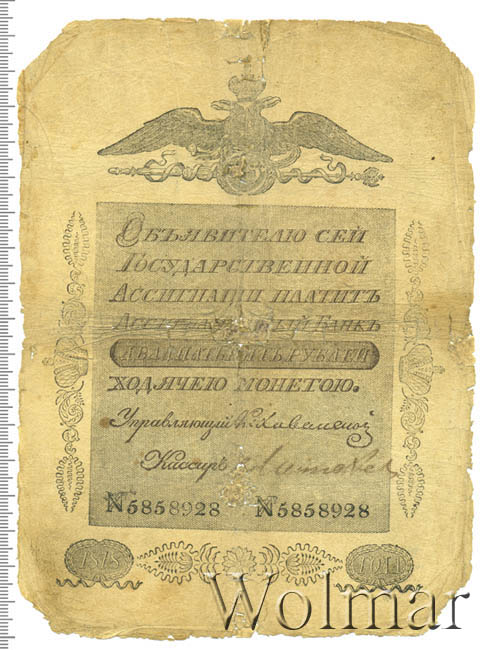 Объявителю сей
Государственной
Ассигнации платитъ
Ассигнаціонный Банкъ
двадцать пять рублей
ходячею монетою.
Управляющій
Кассиръ
№5858928 №5858928
1818
Wolmar